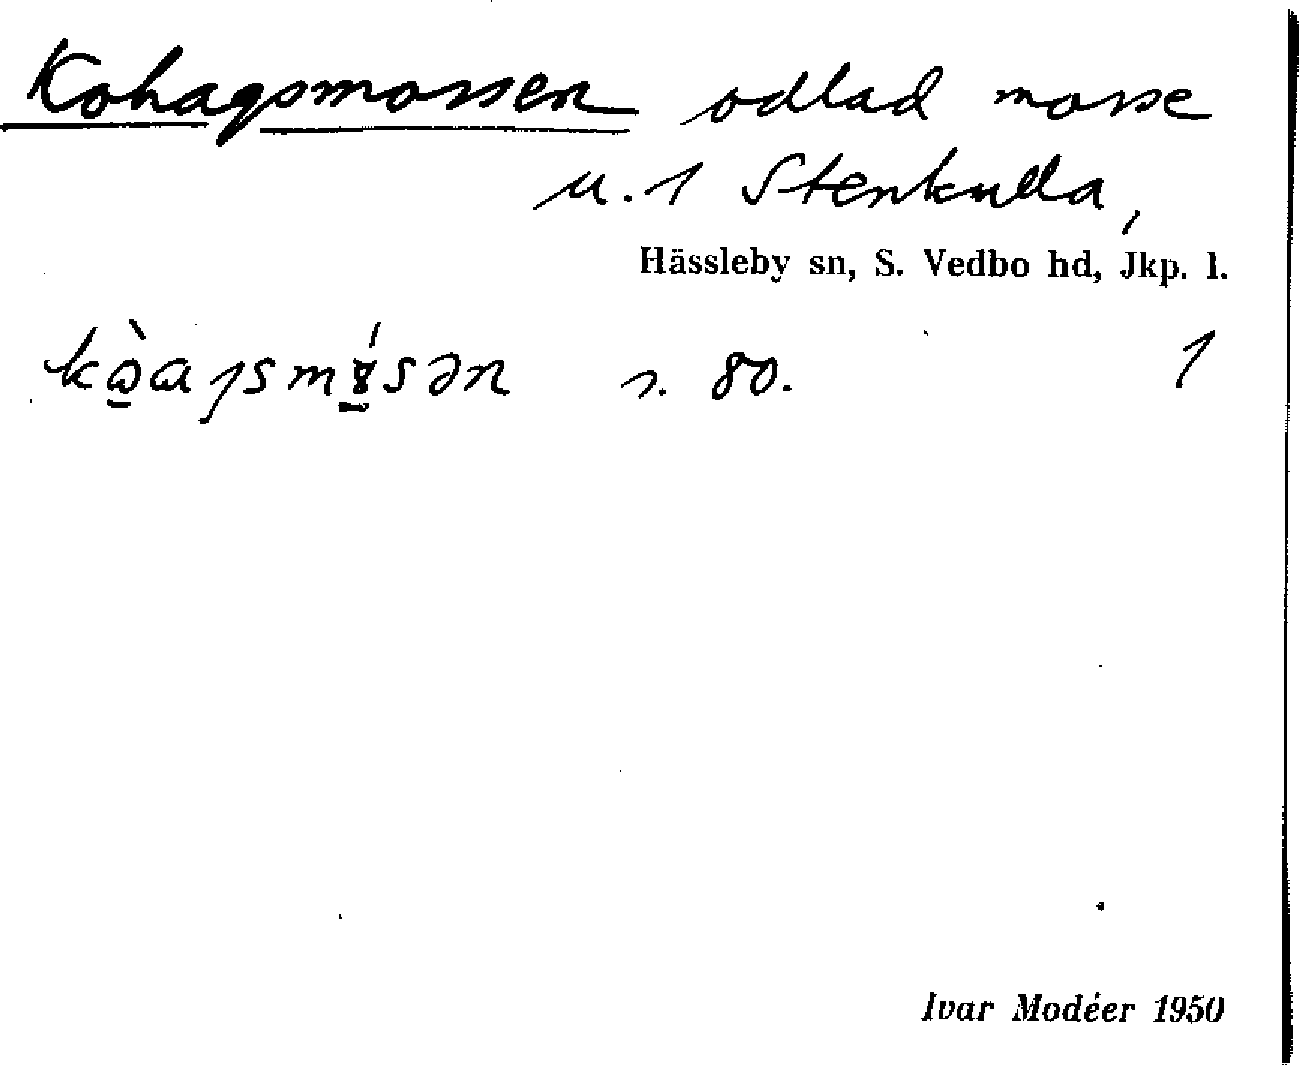 Kohagsmossen odlad mosse
u. 1 Stenkulla,
Hässleby sn, S. Vedbo hd, Jkp. l.
s. 80. 1
Ivar Modéer 1950